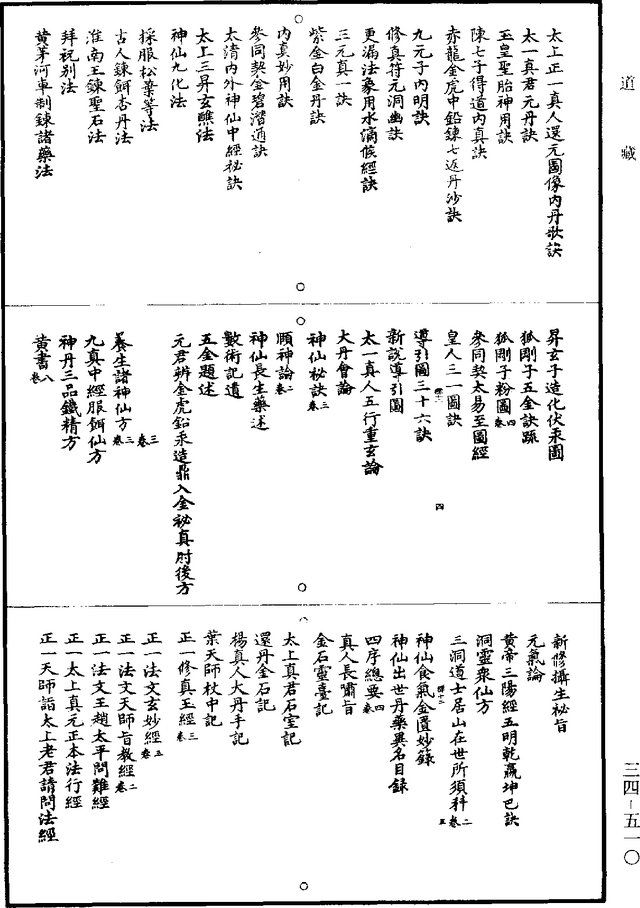 道藏
太上正一真人還元圖像內丹歌訣
太一真君元丹訣
玉皇聖胎神用訣
陳七子得道內真訣
赤龍金虎中鉛鍊七返丹沙訣
九元子內明訣
修真符元洞幽訣
更漏法象用水滴候經訣
三元真一訣
紫金白金丹訣
內真妙用訣
參同契金碧潛通訣
太清內外神仙中經秘訣
太上三昇玄醮法
神仙九化法
採服松葉等法
古人鍊餌杏丹法
淮南王鍊聖石法
拜祝別法
黃茅河車制鍊諸藥法
昇玄子造化伏汞圖
狐剛子五金訣䟽
狐剛子粉圖卷四
參同契太易至圖經
皇人三一圖訣
導引圖三十六訣
四
新說導引圖
太一真人五行重玄論
大丹會論
神仙秘訣卷三
順神論卷二
神仙長生藥述
數術記遺
五金題述
元君辨金虎鉛汞造鼎入金秘真肘後方
卷三
養生諸神仙方卷三
九真中經服餌仙方
神丹三品鐵精方
黃書卷八
新修攝生秘旨
元氣論
黃帝三陽經五明乾羸坤巴訣
洞靈衆仙方
三洞道士居山在世所須科卷二
五
神仙食氣金匱妙錄
神仙出世丹藥異名目録
四序總要卷四
真人長嘯旨
金石靈臺記
太上真君石室記
還丹金石記
楊真人大丹手記
葉天師枕中記
正一修真玉經卷三
正一法文玄妙經卷五
正一法文天師旨教經卷二
正一法文王趙太平問難經
正一太上真元正本法行經
正一天師詣太上老君請問法經
三四-五一〇